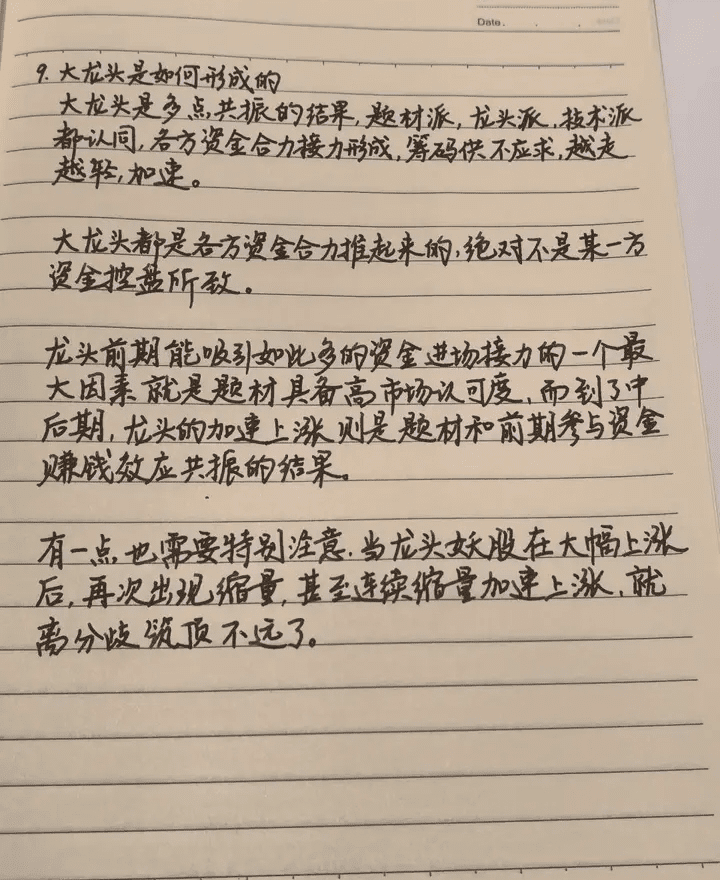 Date.
9. 大龙头是如何形成的
大龙头是多点共振的结果,题材派,龙头派,技术派
都认同,各方资金合力接力形成,筹码供不应求,越走
越轻,加速。
大龙头都是各方资金合力推起来的,绝对不是某一方
资金控盘所致。
龙头前期能吸引如此多的资金进场接力的一个最
大因素就是题材具备高市场认可度,而到了中
后期,龙头的加速上涨则是题材和前期参与资金
赚钱效应共振的结果。
有一点也需要特别注意.当龙头妖股在大幅上涨
后,再次出现缩量,甚至连续缩量加速上涨,就
离分歧筑顶不远了。